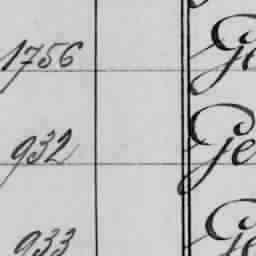 1756 Ge
932 Ge
933 Ge